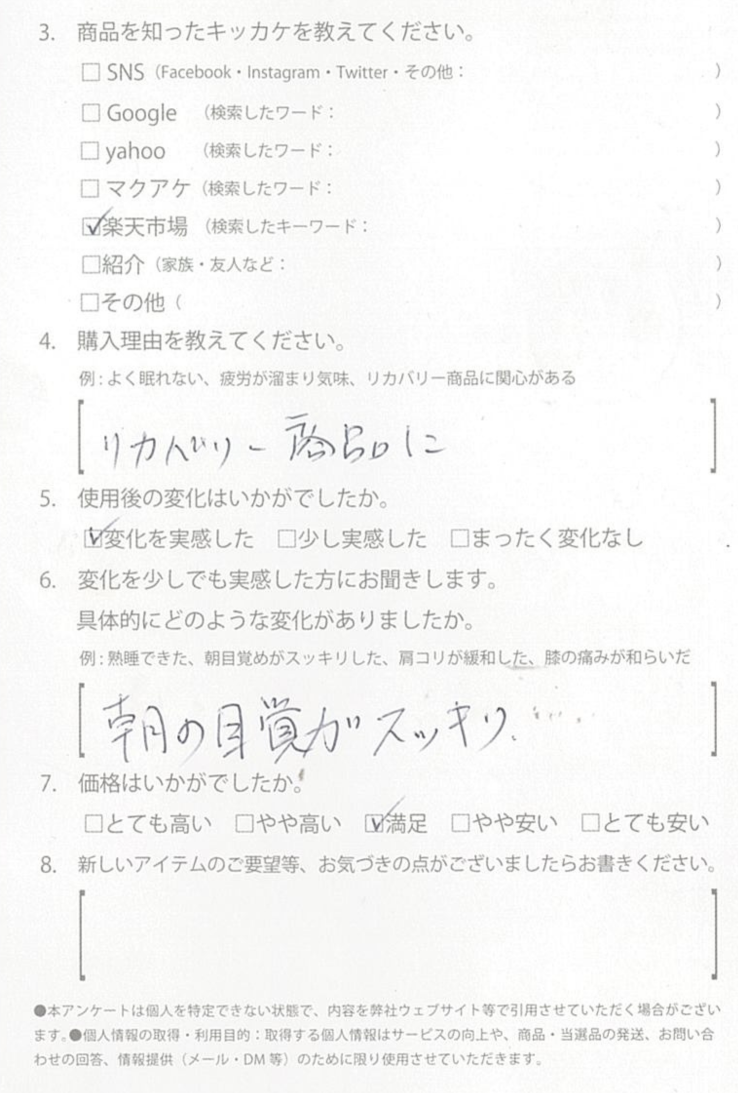 3. 商品を知ったキッカケを教えてください。
□ SNS（Facebook・Instagram・Twitter・その他： ）
□ Google （検索したワード： ）
□ yahoo （検索したワード： ）
□ マクアケ（検索したワード： ）
☑楽天市場 （検索したキーワード： ）
□紹介（家族・友人など： ）
□その他（ ）
4. 購入理由を教えてください。
例：よく眠れない、疲労が溜まり気味、リカバリー商品に関心がある
リカバリー商品に
5. 使用後の変化はいかがでしたか。
☑変化を実感した □少し実感した □まったく変化なし
6. 変化を少しでも実感した方にお聞きします。
具体的にどのような変化がありましたか。
例：熟睡できた、朝目覚めがスッキリした、肩コリが緩和した、膝の痛みが和らいだ
朝の目覚がスッキリ、
7. 価格はいかがでしたか。
□とても高い □やや高い ☑満足 □やや安い □とても安い
8. 新しいアイテムのご要望等、お気づきの点がございましたらお書きください。
●本アンケートは個人を特定できない状態で、内容を弊社ウェブサイト等で引用させていただく場合がござい
ます。●個人情報の取得・利用目的：取得する個人情報はサービスの向上や、商品・当選品の発送、お問い合
わせの回答、情報提供（メール・DM 等）のために限り使用させていただきます。